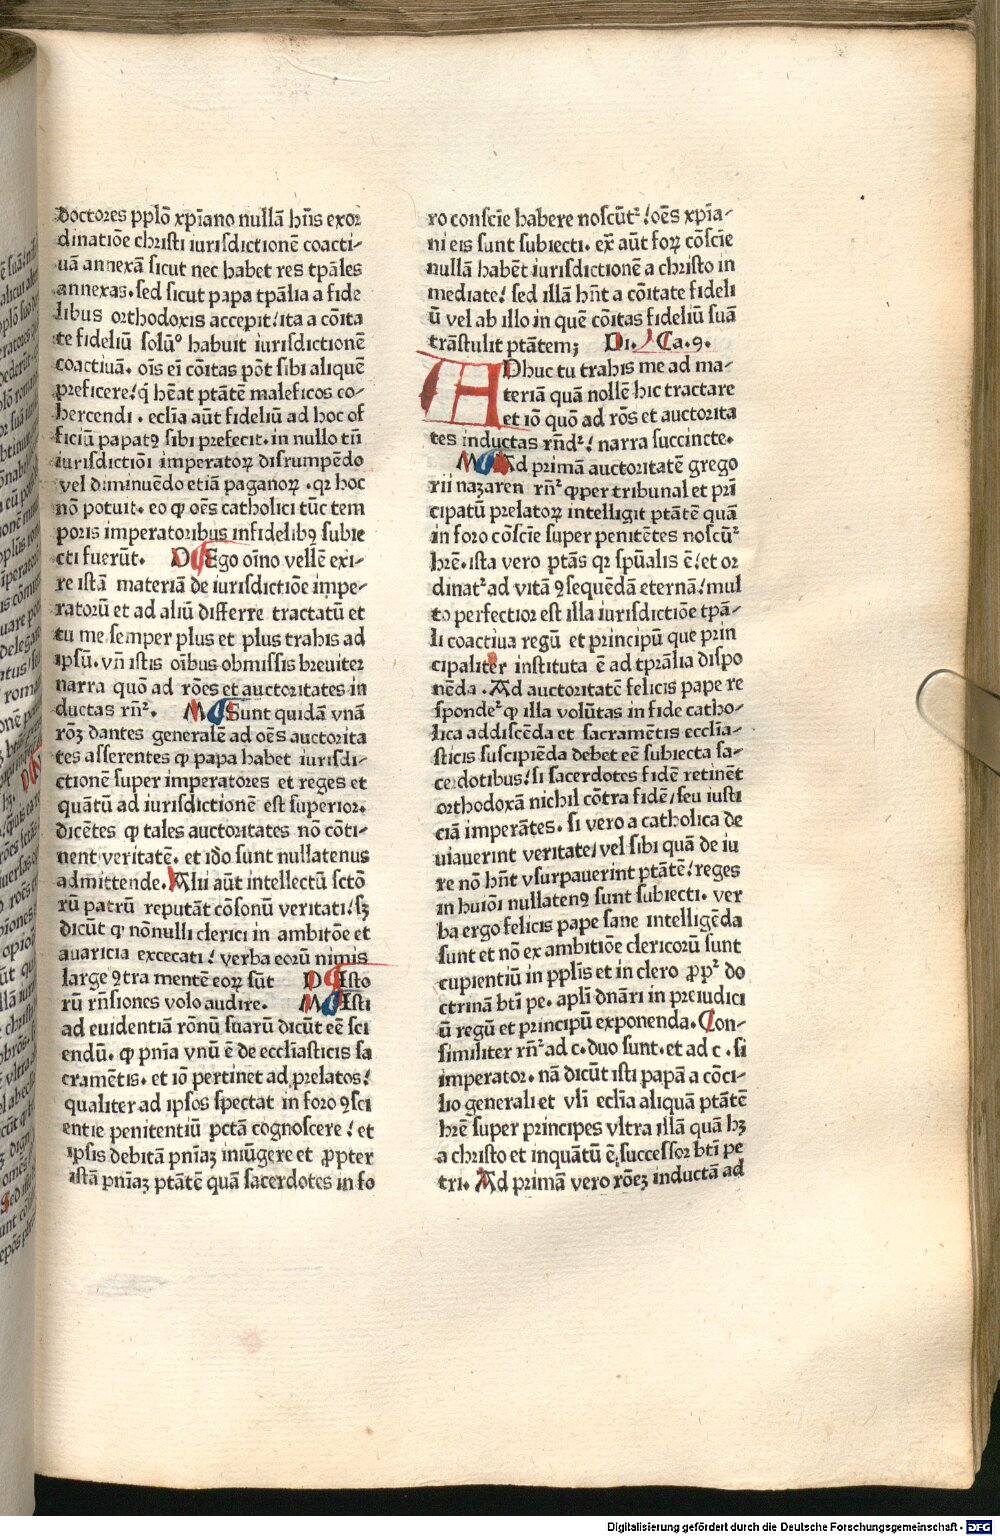 doctores pplō xp̄iano nullā hn̄s exor
dinatiōe christi iurisdictionē coacti-
uā annexā sicut nec habet res tp̄ales
annexas. sed sicut papa tp̄alia a fide
libus orthodoxis accepit/ ita a cōīta
te fideliū solūᵒ habuit iurisdictionē
coactiuā. oīs eī cōitas pōt sibi aliquē
preficere/ q̇ hēat ptātē maleficos co-
hercendi. ecl̄ia aūt fideliū ad hoc of
ficiū papatꝰ sibi prefecit. in nullo tn̄
iurisdictiōi imperatoꝝ disrumpēdo
vel diminuēdo etiā paganoꝝ. qr hoc
nō potuit. eo ꝙ oēs catholici tūc tem
poris imperatoribus infidelibꝰ subie
cti fuerūt. D Ego oīno vellē exi-
re istā materiā de iurisdictiōe impe-
ratorū et ad aliū differre tractatū et
tu me semper plus et plus trahis ad
ipsū. vn̄ istis oībus obmissis breuiter
narra quō ad rōes et auctoritates in
ductas rn̄ᷣ. M Sunt quidā vnā
rōꝫ dantes generalē ad oēs auctorita
tes asserentes ꝙ papa habet iurisdi-
ctionē super imperatores et reges et
quātū ad iurisdictionē est superior.
dicētes ꝙ tales auctoritates nō cōti-
nent veritatē. et id̄o sunt nullatenus
admittende. Alij aūt intellectū sctō
rū patrū reputāt cōsonū veritati/ sꝫ
dicūt ꝙ nōnulli clerici in ambitōe et
auaricia excecati/ verba eorū nimis
large ꝯtra mentē eoꝝ sūt D Isto
rū rn̄siones volo audire. M Isti
ad euidentiā rōnū suarū dicūt eē sci
endū. ꝙ pn̄ia vnū ē de eccl̄iasticis sa
cramētis. et iō pertinet ad prelatos/
qualiter ad ipsos spectat in foro ꝯsci
entie penitentiū pctā cognoscere/ et
ipsis debitā pn̄iaꝫ iniūgere et ꝓpter
istā pn̄iaꝫ ptātē quā sacerdotes in fo
ro consciē habere noscūtᷣ/ oēs xp̄ia-
ni eis sunt subiecti. ex̄ aūt foꝝ cōsciē
nullā habēt iurisdictionē a christo in
mediate/ sed illā hn̄t a cōitate fideli
ū vel ab illo in quē cōitas fideliū suā
trāstulit ptātem; Di. Ca. 9.
ADhuc tu trahis me ad ma-
teriā quā nollē hic tractare
et iō quō ad rōs et auctorita
tes inductas rn̄dᷣ/ narra succincte.
M Ad primā auctoritatē grego
rii nazaren rn̄ᷣ ꝙ per tribunal et prī
cipatū prelatoꝝ intelligit ptātē quā
in foro cōsciē super penitētes noscūᷣ
hr̄e. ista vero ptās qr spūalis ē/ et or
dinatᷣ ad vitā ꝯsequēdā eternā/ mul
to perfectior est illa iurisdictiōe tpā-
li coactiua regū et principū que prin
cipaliter instituta ē ad tpralia dispo
nēda. Ad auctoritatē felicis pape re
spondeᷣ ꝙ illa volūtas in fide catho-
lica addiscēda et sacramētis eccl̄ia-
sticis suscipiēda debet eē subiecta sa-
cerdotibus/ si sacerdotes fidē retinēt
orthodoxā nichil cōtra fidē/ seu iusti
ciā imperātes. si vero a catholica de
uiauerint veritate/ vel sibi quā de iu
re nō hn̄t vsurpauerint ptātē/ reges
in huiōi nullatenꝰ sunt subiecti. ver
ba ergo felicis pape sane intelligēda
sunt et nō ex ambitiōe clericorū sunt
cupientiū in pplīs et in clero ꝓpᷣ do
ctrinā bt̄i pe. apl̄i dn̄ari in preiudici
ū regū et principū exponenda. Con-
similiter rn̄ᷣ ad c. duo sunt. et ad c. si
imperator. nā dicūt isti papā a cōci-
lio generali et vl̄i ecl̄ia aliquā ptātē
hr̄e super principes vltra illā quā hꝫ
a christo et inquātū ē successor bt̄i pe
tri. Ad primā vero rōeꝫ inductā ad
Digitalisierung gefördert durch die Deutsche Forschungsgemeinschaft - DFG